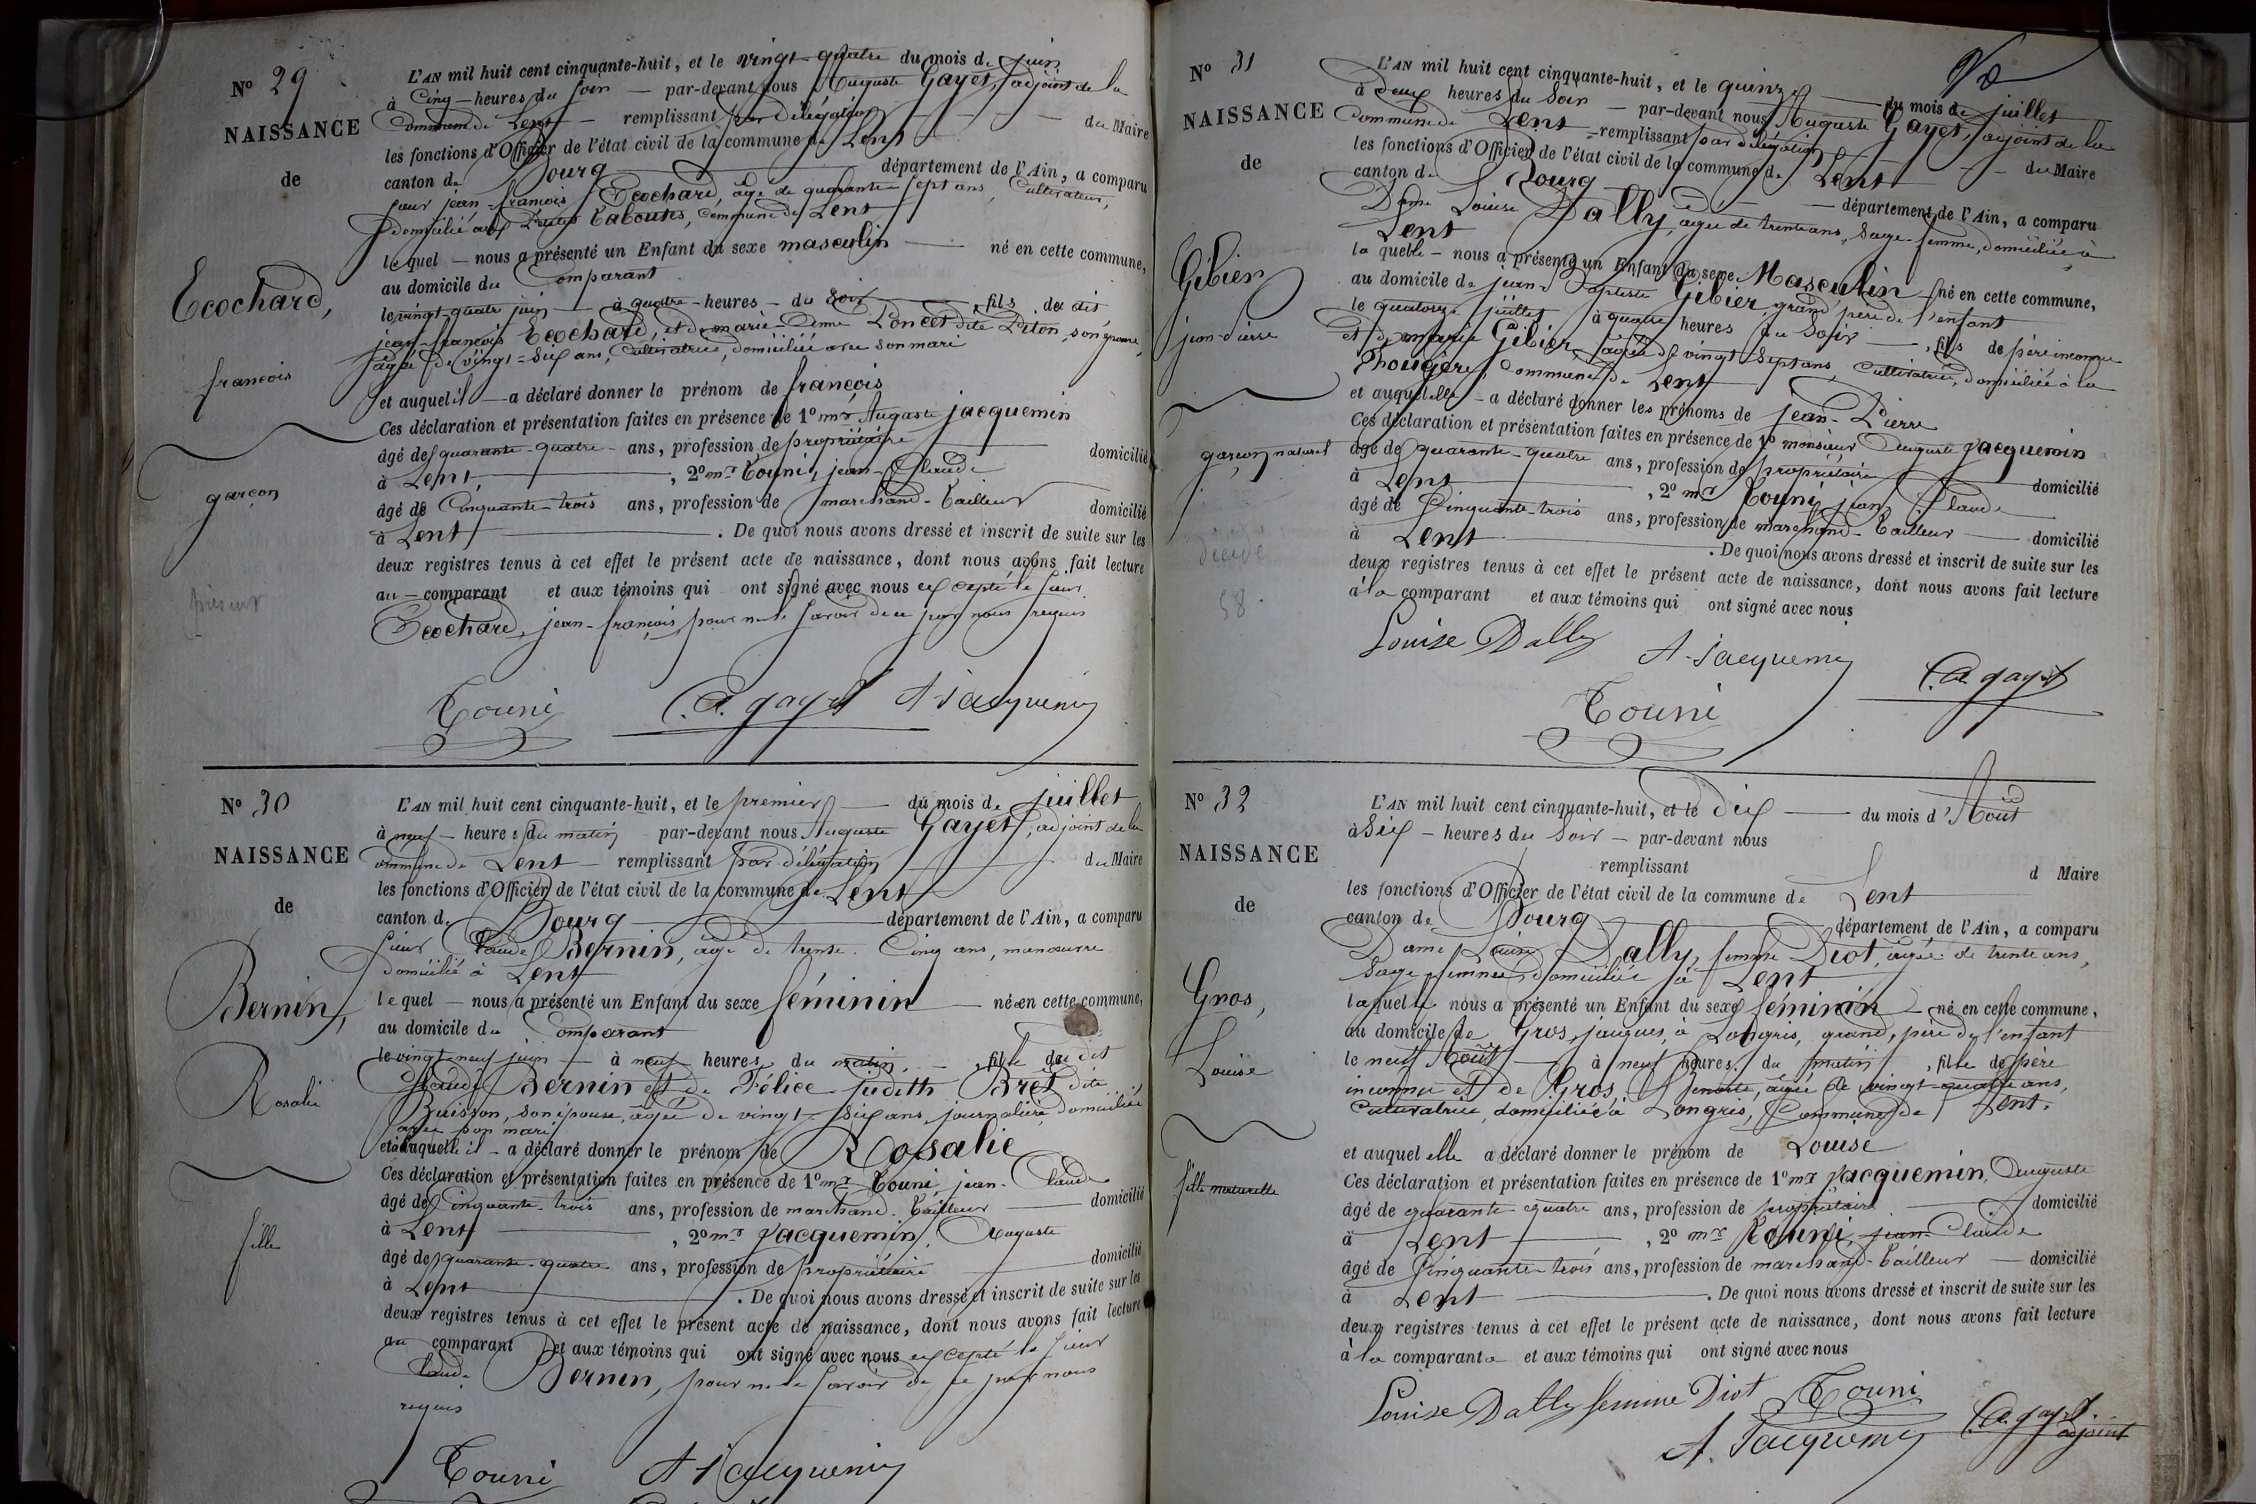 N° 29
NAISSANCE
de
Ecochard,
françois
garçon
L'AN mil huit cent cinquante-huit, et le vingt-quatre du mois de juin
à Cinq heures du soir — par-devant nous Auguste Gayet, adjoint de la
Commune de Lent — remplissant par délégation — du Maire
les fonctions d'Officier de l'état civil de la commune de Lent
canton de Bourg département de l'Ain, a comparu
sieur jean-françois Ecochard, âgé de quarante-sept ans, Cultivateur,
domicilié aux Tabourets, commune de Lent
lequel — nous a présenté un Enfant du sexe masculin — né en cette commune,
au domicile du Comparant
le vingt-quatre juin — à quatre heures — du soir, fils du dit
jean-françois Ecochard, et de marie-Anne Poncet dite Piton, son épouse,
âgée de vingt-six ans, Cultivatrice, domiciliée avec son mari
et auquel il — a déclaré donner le prénom de françois
Ces déclaration et présentation faites en présence de 1° mr Auguste jacquemin
âgé de quarante-quatre ans, profession de propriétaire domicilié
à Lent, , 2° mr Touni, jean-Claude
âgé de Cinquante-trois ans, profession de marchand-Tailleur domicilié
à Lent . De quoi nous avons dressé et inscrit de suite sur les
deux registres tenus à cet effet le présent acte de naissance, dont nous avons fait lecture
au comparant et aux témoins qui ont signé avec nous excepté le sieur
Ecochard, jean-françois, pour ne le savoir de ce par nous requis
Touni C. A. gayet A Jacquemin
N° 30
NAISSANCE
de
Bernin,
Rosalie
fille
L'AN mil huit cent cinquante-huit, et le premier — du mois de juillet
à neuf heures du matin par-devant nous Auguste Gayet, adjoint de la
commune de Lent — remplissant par délégation du Maire
les fonctions d'Officier de l'état civil de la commune de Lent
canton de Bourg département de l'Ain, a comparu
sieur Claude Bernin, âgé de trente-Cinq ans, manœuvre
domicilié à Lent
lequel — nous a présenté un Enfant du sexe féminin — né en cette commune,
au domicile du Comparant
le vingt-neuf juin — à neuf heures du matin, fille du dit
Claude Bernin et de Félice-judith Bret dite
Buisson, son épouse, âgée de vingt-six ans, journalière, domiciliée
avec son mari
et à laquelle il — a déclaré donner le prénom de Rosalie
Ces déclaration et présentation faites en présence de 1° mr Touni jean-Claude
âgé de Cinquante-trois ans, profession de marchand-Tailleur domicilié
à Lent , 2° mr Jacquemin, Auguste
âgé de quarante-quatre ans, profession de propriétaire domicilié
à Lent . De quoi nous avons dressé et inscrit de suite sur les
deux registres tenus à cet effet le présent acte de naissance, dont nous avons fait lecture
au comparant et aux témoins qui ont signé avec nous excepté le sieur
Claude Bernin, pour ne le savoir de ce par nous
requis
Touni A Jacquemin
N° 31
NAISSANCE
de
Gibier
jean-Pierre
garçon naturel
L'AN mil huit cent cinquante-huit, et le quinze du mois de juillet
à deux heures du soir — par-devant nous Auguste Gayet, adjoint de la
commune de Lent — remplissant par délégation du Maire
les fonctions d'Officier de l'état civil de la commune de Lent
canton de Bourg département de l'Ain, a comparu
Dame Louise Dally, âgée de trente ans, Sage-femme, domiciliée à
Lent
laquelle — nous a présenté un Enfant du sexe Masculin né en cette commune,
au domicile de jean-Baptiste Gibier, grand père de l'enfant
le quatorze juillet à quatre heures du soir, fils de père inconnu
et de marie Gibier, âgée de vingt-sept ans, Cultivatrice, domiciliée à la
commune de Lent
et auquel elle — a déclaré donner les prénoms de jean-Pierre
Ces déclaration et présentation faites en présence de 1° monsieur Auguste Jacquemin
âgé de quarante-quatre ans, profession de propriétaire domicilié
à Lent , 2° mr Touni jean Claude
âgé de Cinquante-trois ans, profession de marchand-Tailleur domicilié
à Lent . De quoi nous avons dressé et inscrit de suite sur les
deux registres tenus à cet effet le présent acte de naissance, dont nous avons fait lecture
à la comparant et aux témoins qui ont signé avec nous
Louise Dally A Jacquemin C. A. gayet
Touni
N° 32
NAISSANCE
de
Gros,
Louise
fille naturelle
L'AN mil huit cent cinquante-huit, et le Dix — du mois d'Août
à Six heures du soir — par-devant nous
remplissant d Maire
les fonctions d'Officier de l'état civil de la commune de Lent
canton de Bourg département de l'Ain, a comparu
Dame Louise Dally, femme Diot, âgée de trente ans,
Sage-femme, domiciliée à Lent
laquelle nous a présenté un Enfant du sexe féminin — né en cette commune,
au domicile de Gros, jacques, à Longris, grand, père de l'enfant
le neuf Août — à neuf heures du matin, fille de père
inconnu et de Gros, Benoite, âgée de vingt-quatre ans,
Cultivatrice, domiciliée à Longris, Commune de Lent.
et auquel elle a déclaré donner le prénom de Louise
Ces déclaration et présentation faites en présence de 1° mr Jacquemin, Auguste
âgé de quarante-quatre ans, profession de propriétaire domicilié
à Lent , 2° mr Touni, jean-Claude
âgé de Cinquante-trois ans, profession de marchand-Tailleur domicilié
à Lent . De quoi nous avons dressé et inscrit de suite sur les
deux registres tenus à cet effet le présent acte de naissance, dont nous avons fait lecture
à la comparante et aux témoins qui ont signé avec nous
Louise Dally femme Diot Touni
A. Jacquemin C. A. gayet.
adjoint